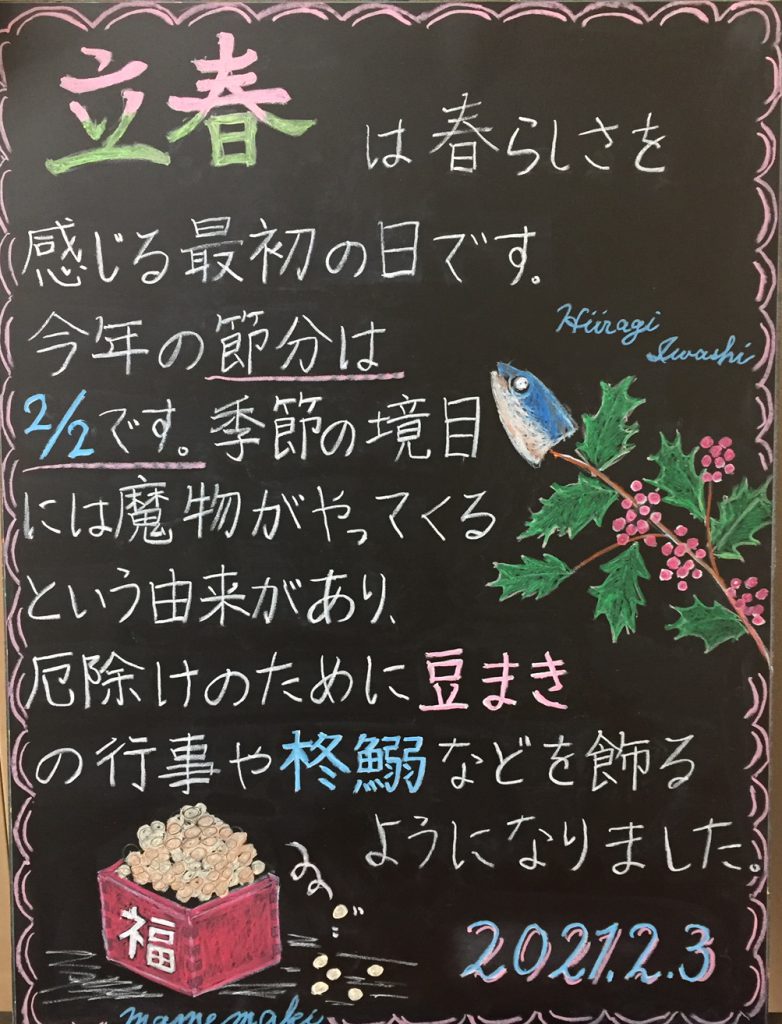 立春は春らしさを
感じる最初の日です。
今年の節分は
2/2です。季節の境目
には魔物がやってくる
という由来があり、
厄除けのために豆まき
の行事や柊鰯などを飾る
ようになりました。
Hiiragi
Iwashi
福
mamemaki
2021.2.3